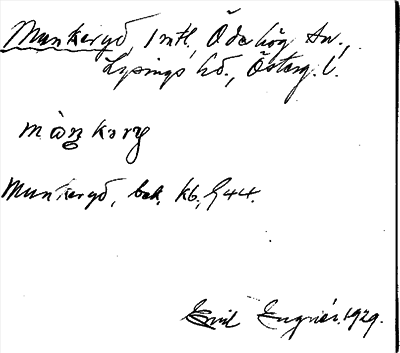 Munkeryd, 1 mtl, Ödeshög sn.,
Lysings hd., Österg. l.
Munkeryd, bek. kb. 944.
Emil Engnér. 1929.